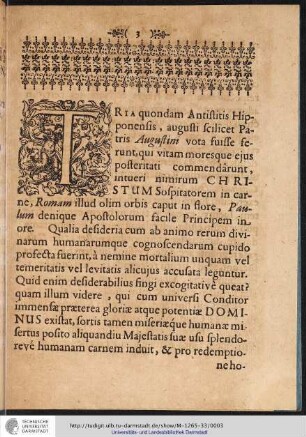 3
TRIA quondam Antistitis Hip-
ponensis, augusti scilicet Pa-
tris Augustini vota fuisse fe-
runt, qui vitam moresque ejus
posteritati commendârunt,
intueri nimirum CHRI-
STUM Sospitatorem in car-
ne, Romam illud olim orbis caput in flore, Pau-
lum denique Apostolorum facile Principem in
ore. Qualia desideria cum ab animo rerum divi-
narum humanarumque cognoscendarum cupido
profecta fuerint, à nemine mortalium unquam vel
temeritatis vel levitatis alicujus accusata leguntur.
Quid enim desiderabilius fingi excogitativè queat?
quam illum videre, qui cum universi Conditor
immensæ præterea gloriæ atque potentiæ DOMI-
NUS existat, sortis tamen miseriæque humanæ mi-
sertus posito aliquandiu Majestatis suæ usu splendo-
revè humanam carnem induit, & pro redemptio-
ne ho-
TECHNISCHE
UNIVERSITÄT
DARMSTADT
http://tudigit.ulb.tu-darmstadt.de/show/M-1265-33/0003
Universitäts- und Landesbibliothek Darmstadt